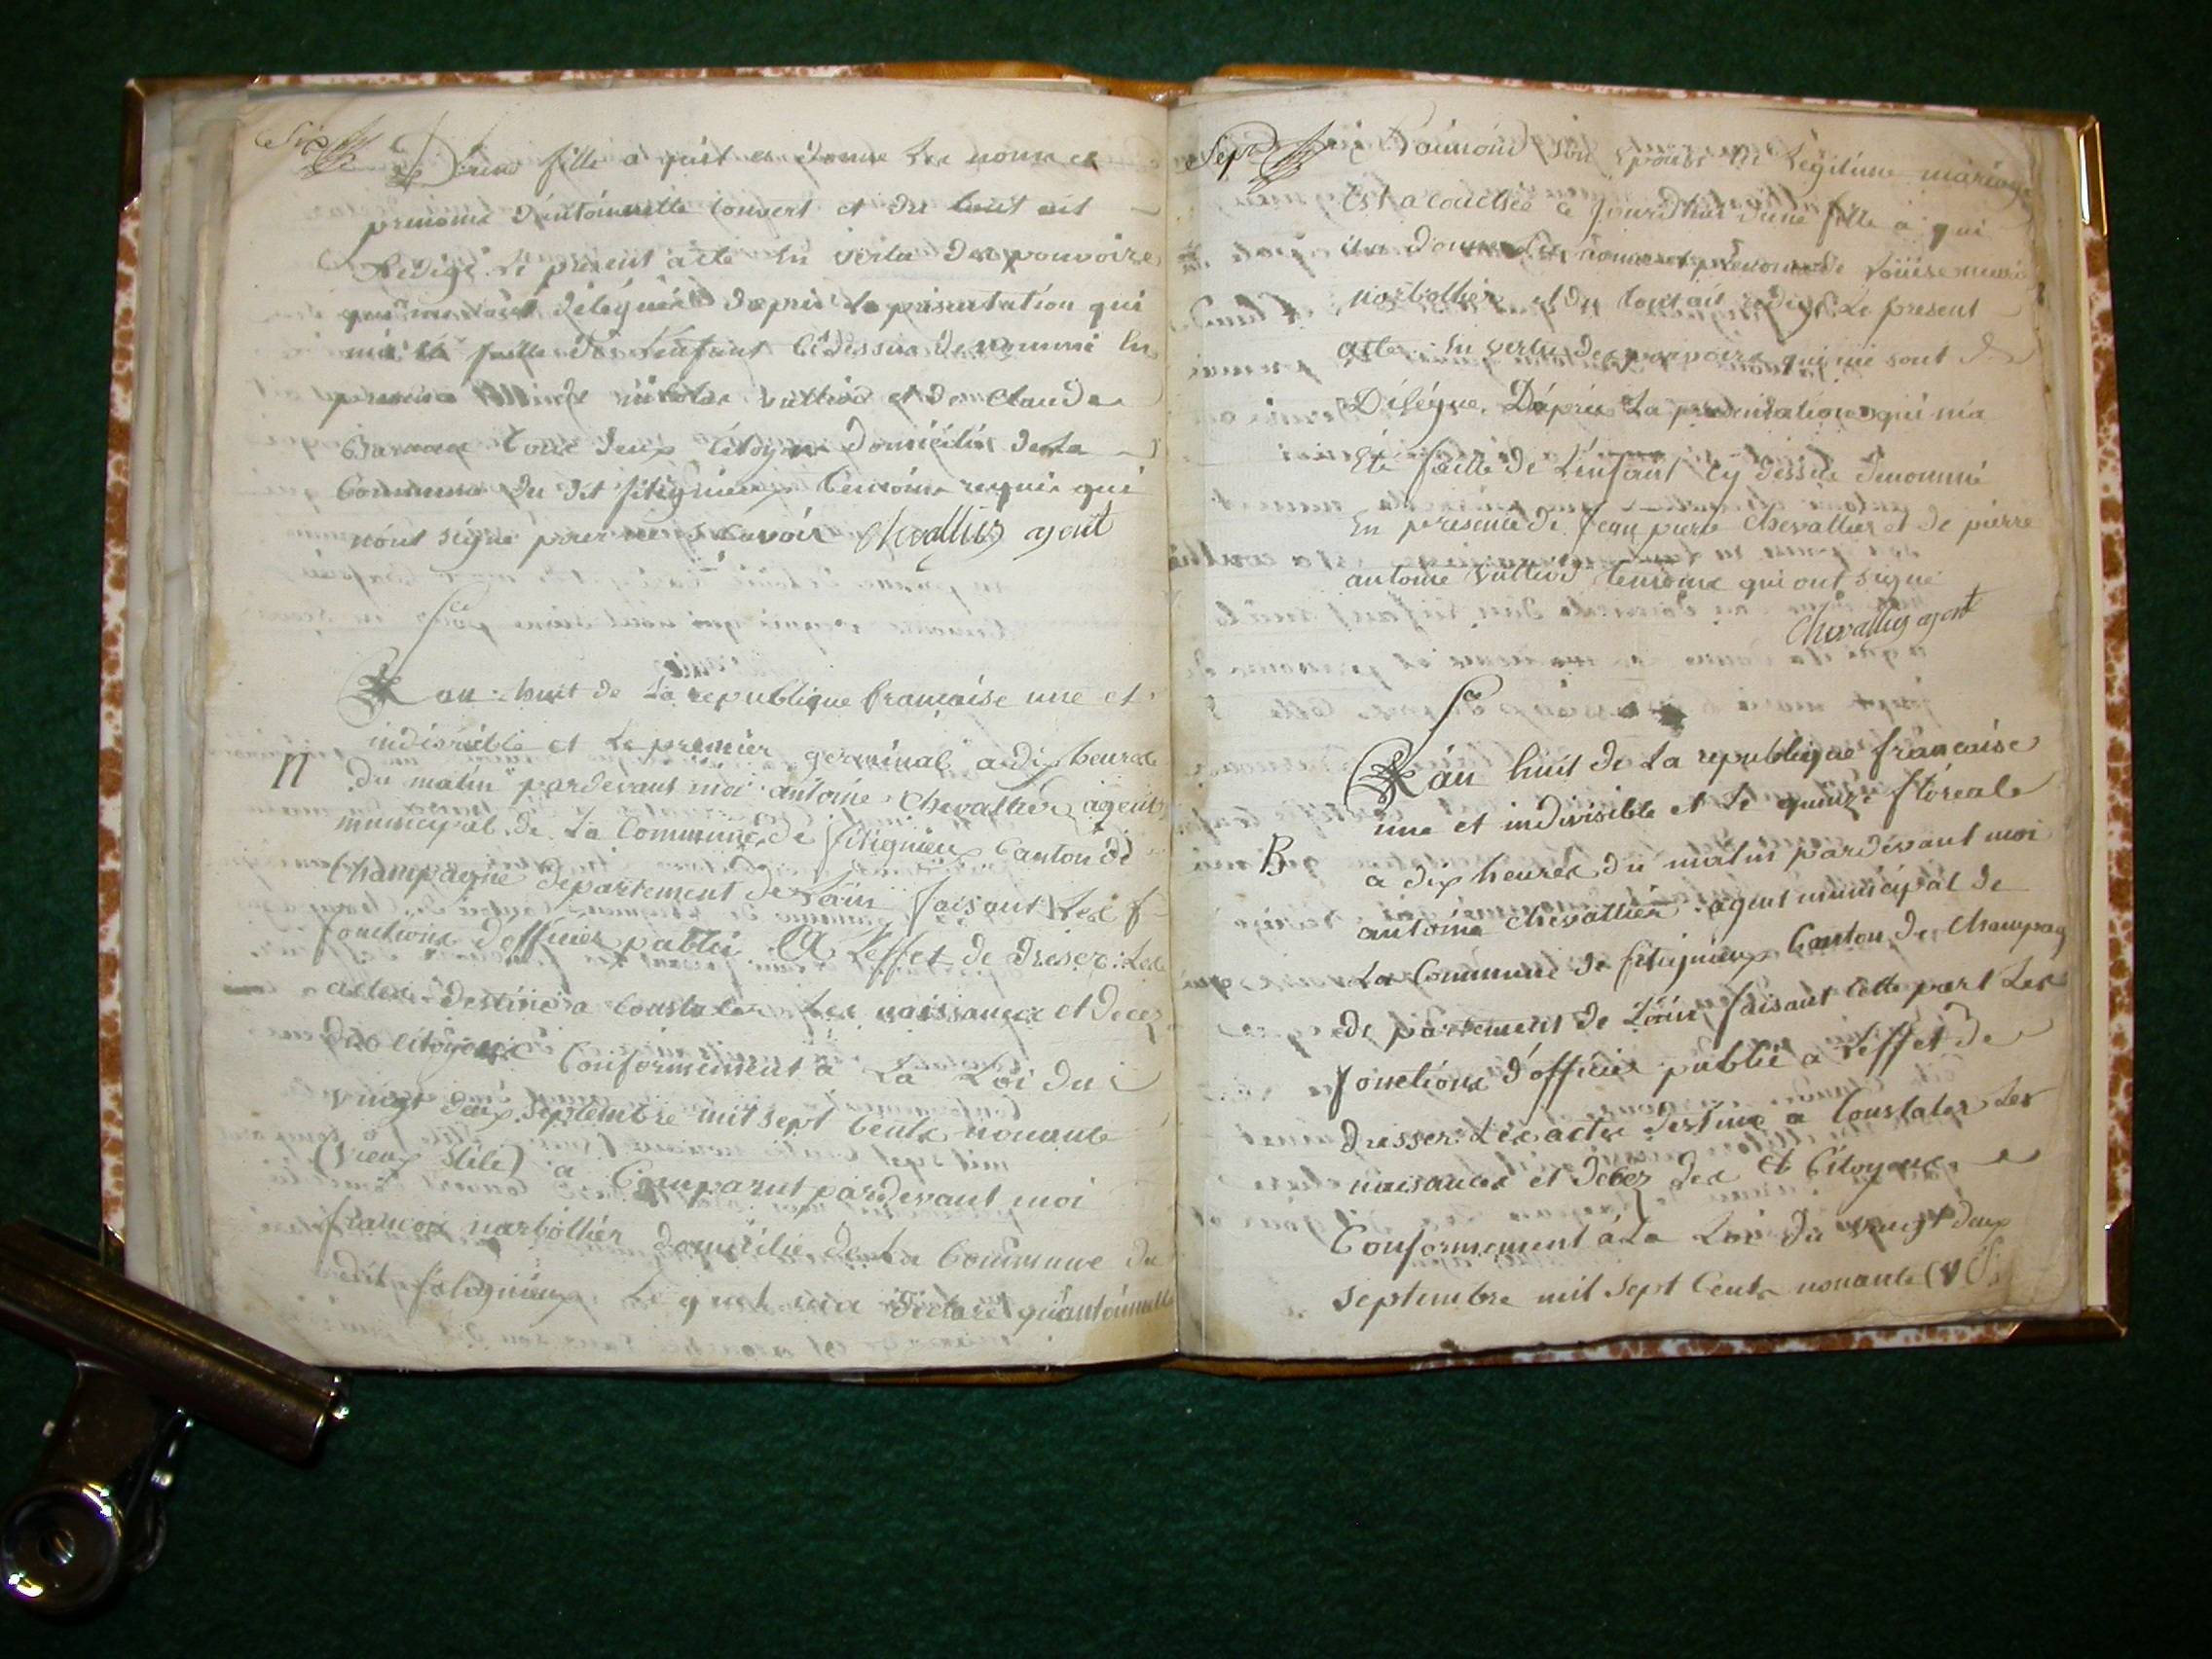 Six
D'une fille a qui il a donne les noms et
prenoms d'antoinette Convert et du tout ait
Redigé le present acte en vertu des pouvoirs
qui me sont délégués dapres la présentation qui
ma été faitte de l'enfant Cÿ dessus denommé en
presence nicolas vuillird et de Claude
tous deux Citoyens domiciliés de la
Commune du dit fitignieux temoins requis qui
nont signé pour ne scavoir chevallier agent
L'an huit de la republique francaise une et
indivisible et le premier germinal a dix heures
n
du matin pardevant moi antoine chevallier agent
municipal de la Commune de fitignieux Canton de
Champagne departement de Lain faisant les f
fonctions d'officier public A L'effet de dreser les
actes destiné a constater les naissances et decez
des citoyens Conformement a la Loi du
vingt deux septembre mil sept cents nonante
(vieux stile) a Comparut pardevant moi
francois narbollier domicilié de la Commune du
dit fitignieux Le quel ma déclaré qu'antoinette
Sept
son epouse en Légitime mariage
Est acouchée ce jourd'hui d'une fille a qui
il a donne les noms et prenoms de Loüise marie
narbollier et du tout ait redigé Le present
acte en vertu des pouvoirs qui me sont
Délégue. D'aprèe La presentation qui ma
Eté faitte de L'enfant Cy dessue denommé
En presence de jean pierre chevallier et de pierre
antoine vuillird temoins qui ont signé
chevallier agent
L'an huit de La republique francaise
une et indivisible et le quinze floréal
B
a dix heures du matin pardevant moi
antoine chevallier agent municipal de
La Commune de fitignieux Canton de Champag
de partement de Lain faisant cette part Les
fonctions d'officier public a L'effet de
dresser Les actes destiné a Constater Les
naisances et decez des et Citoyens
Conformement á La Loi du vingt deux
septembre mil sept Cents nonante (v S)